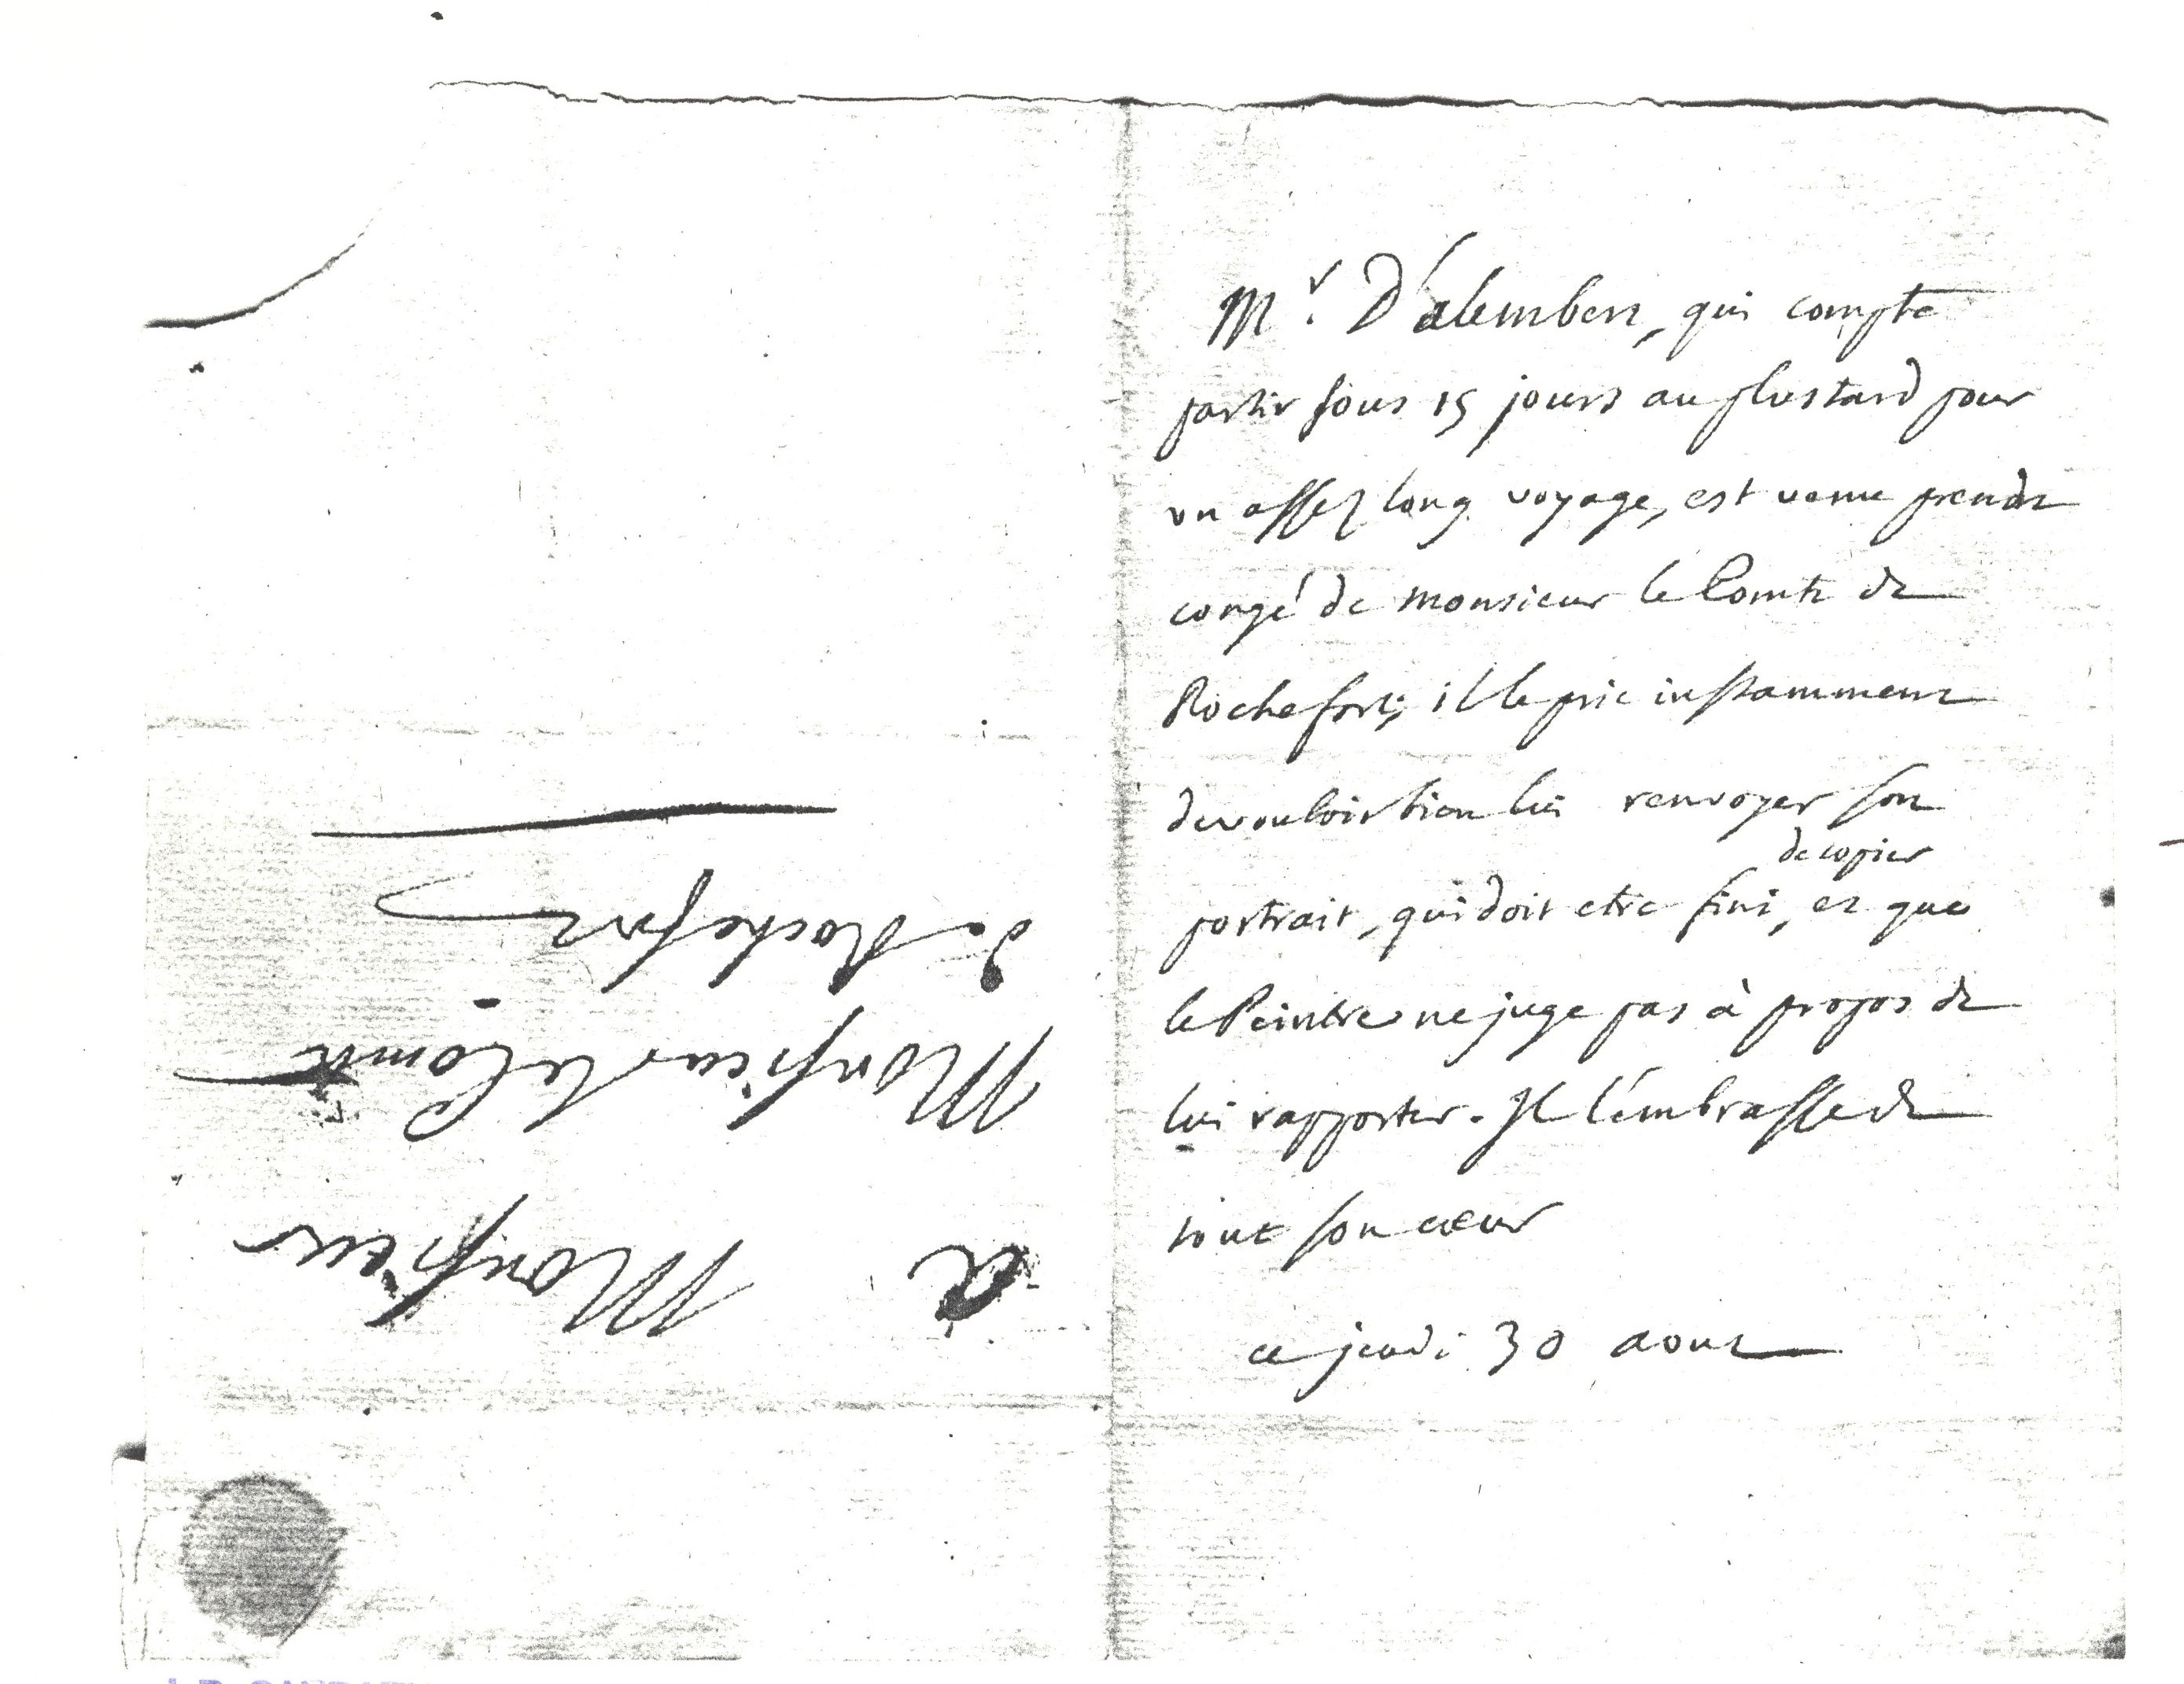 Mr. D'alembert, qui compte
partir sous 15 jours au plustard pour
un assez long voyage, est venu prendre
congé de monsieur le Comte de
Rochefort; il le prie instamment
de vouloir bien lui renvoyer son
de copier
portrait, qui doit etre fini, et que
le Peintre ne juge pas à propos de
lui rapporter. Il l'embrasse de
tout son cœur
ce jeudi 30 aout
a Monsieur
Monsieur le Comte
de Rochefort